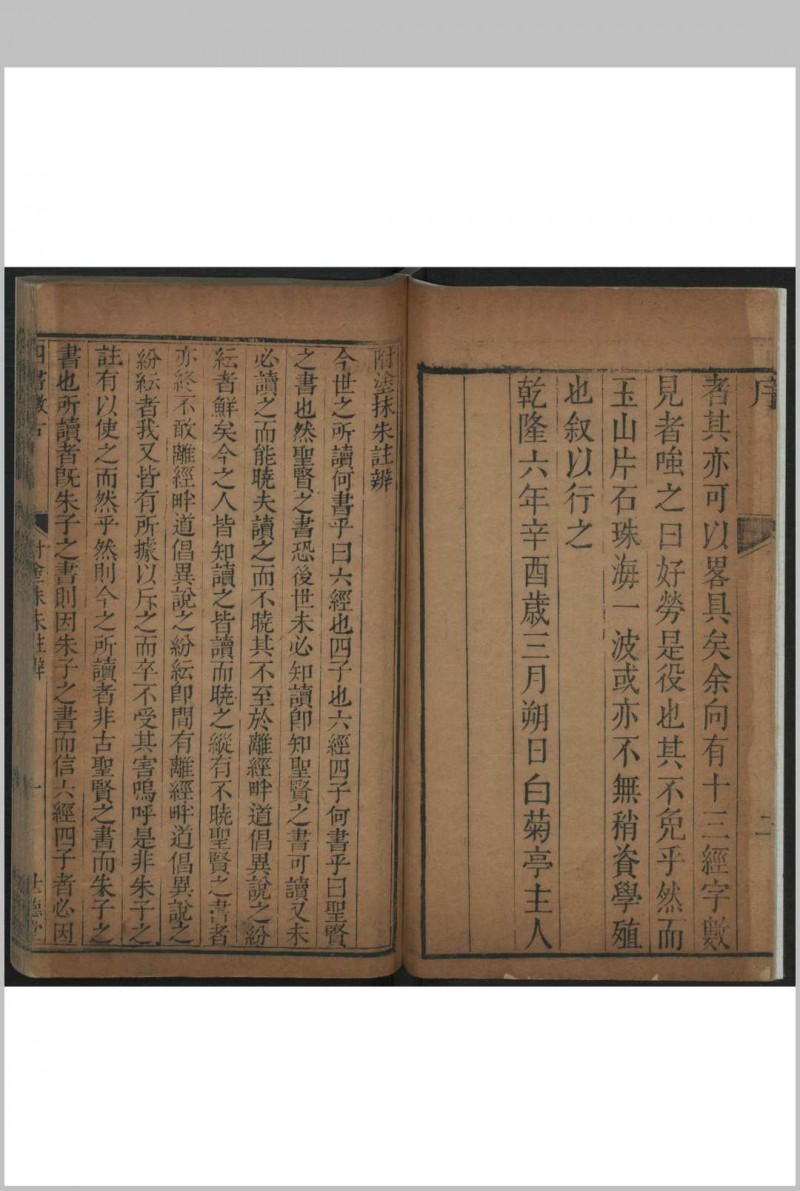 序
二
者其亦可以畧具矣余向有十三經字數
見者嗤之曰好勞是役也其不免乎然而
玉山片石珠海一波或亦不無稍資學殖
也叙以行之
乾隆六年辛酉歲三月朔日白菊亭主人
附塗抹朱註辨
今世之所讀何書乎曰六經也四子也六經四子何書乎曰聖賢
之書也然聖賢之書恐後世未必知讀卽知聖賢之書可讀又未
必讀之而能曉夫讀之而不曉其不至於離經畔道倡異說之紛
紜者鮮矣今之人皆知讀之皆讀而曉之縱有不曉聖賢之書者
亦終不敢離經畔道倡異說之紛紜卽間有離經畔道倡異說之
紛紜者我又皆有所據以斥之而卒不受其害嗚呼是非朱子之
註有以使之而然乎然則今之所讀者非古聖賢之書而朱子之
書也所讀者旣朱子之書則因朱子之書而信六經四子者必因
四書
附塗抹朱註辨
一
世德堂